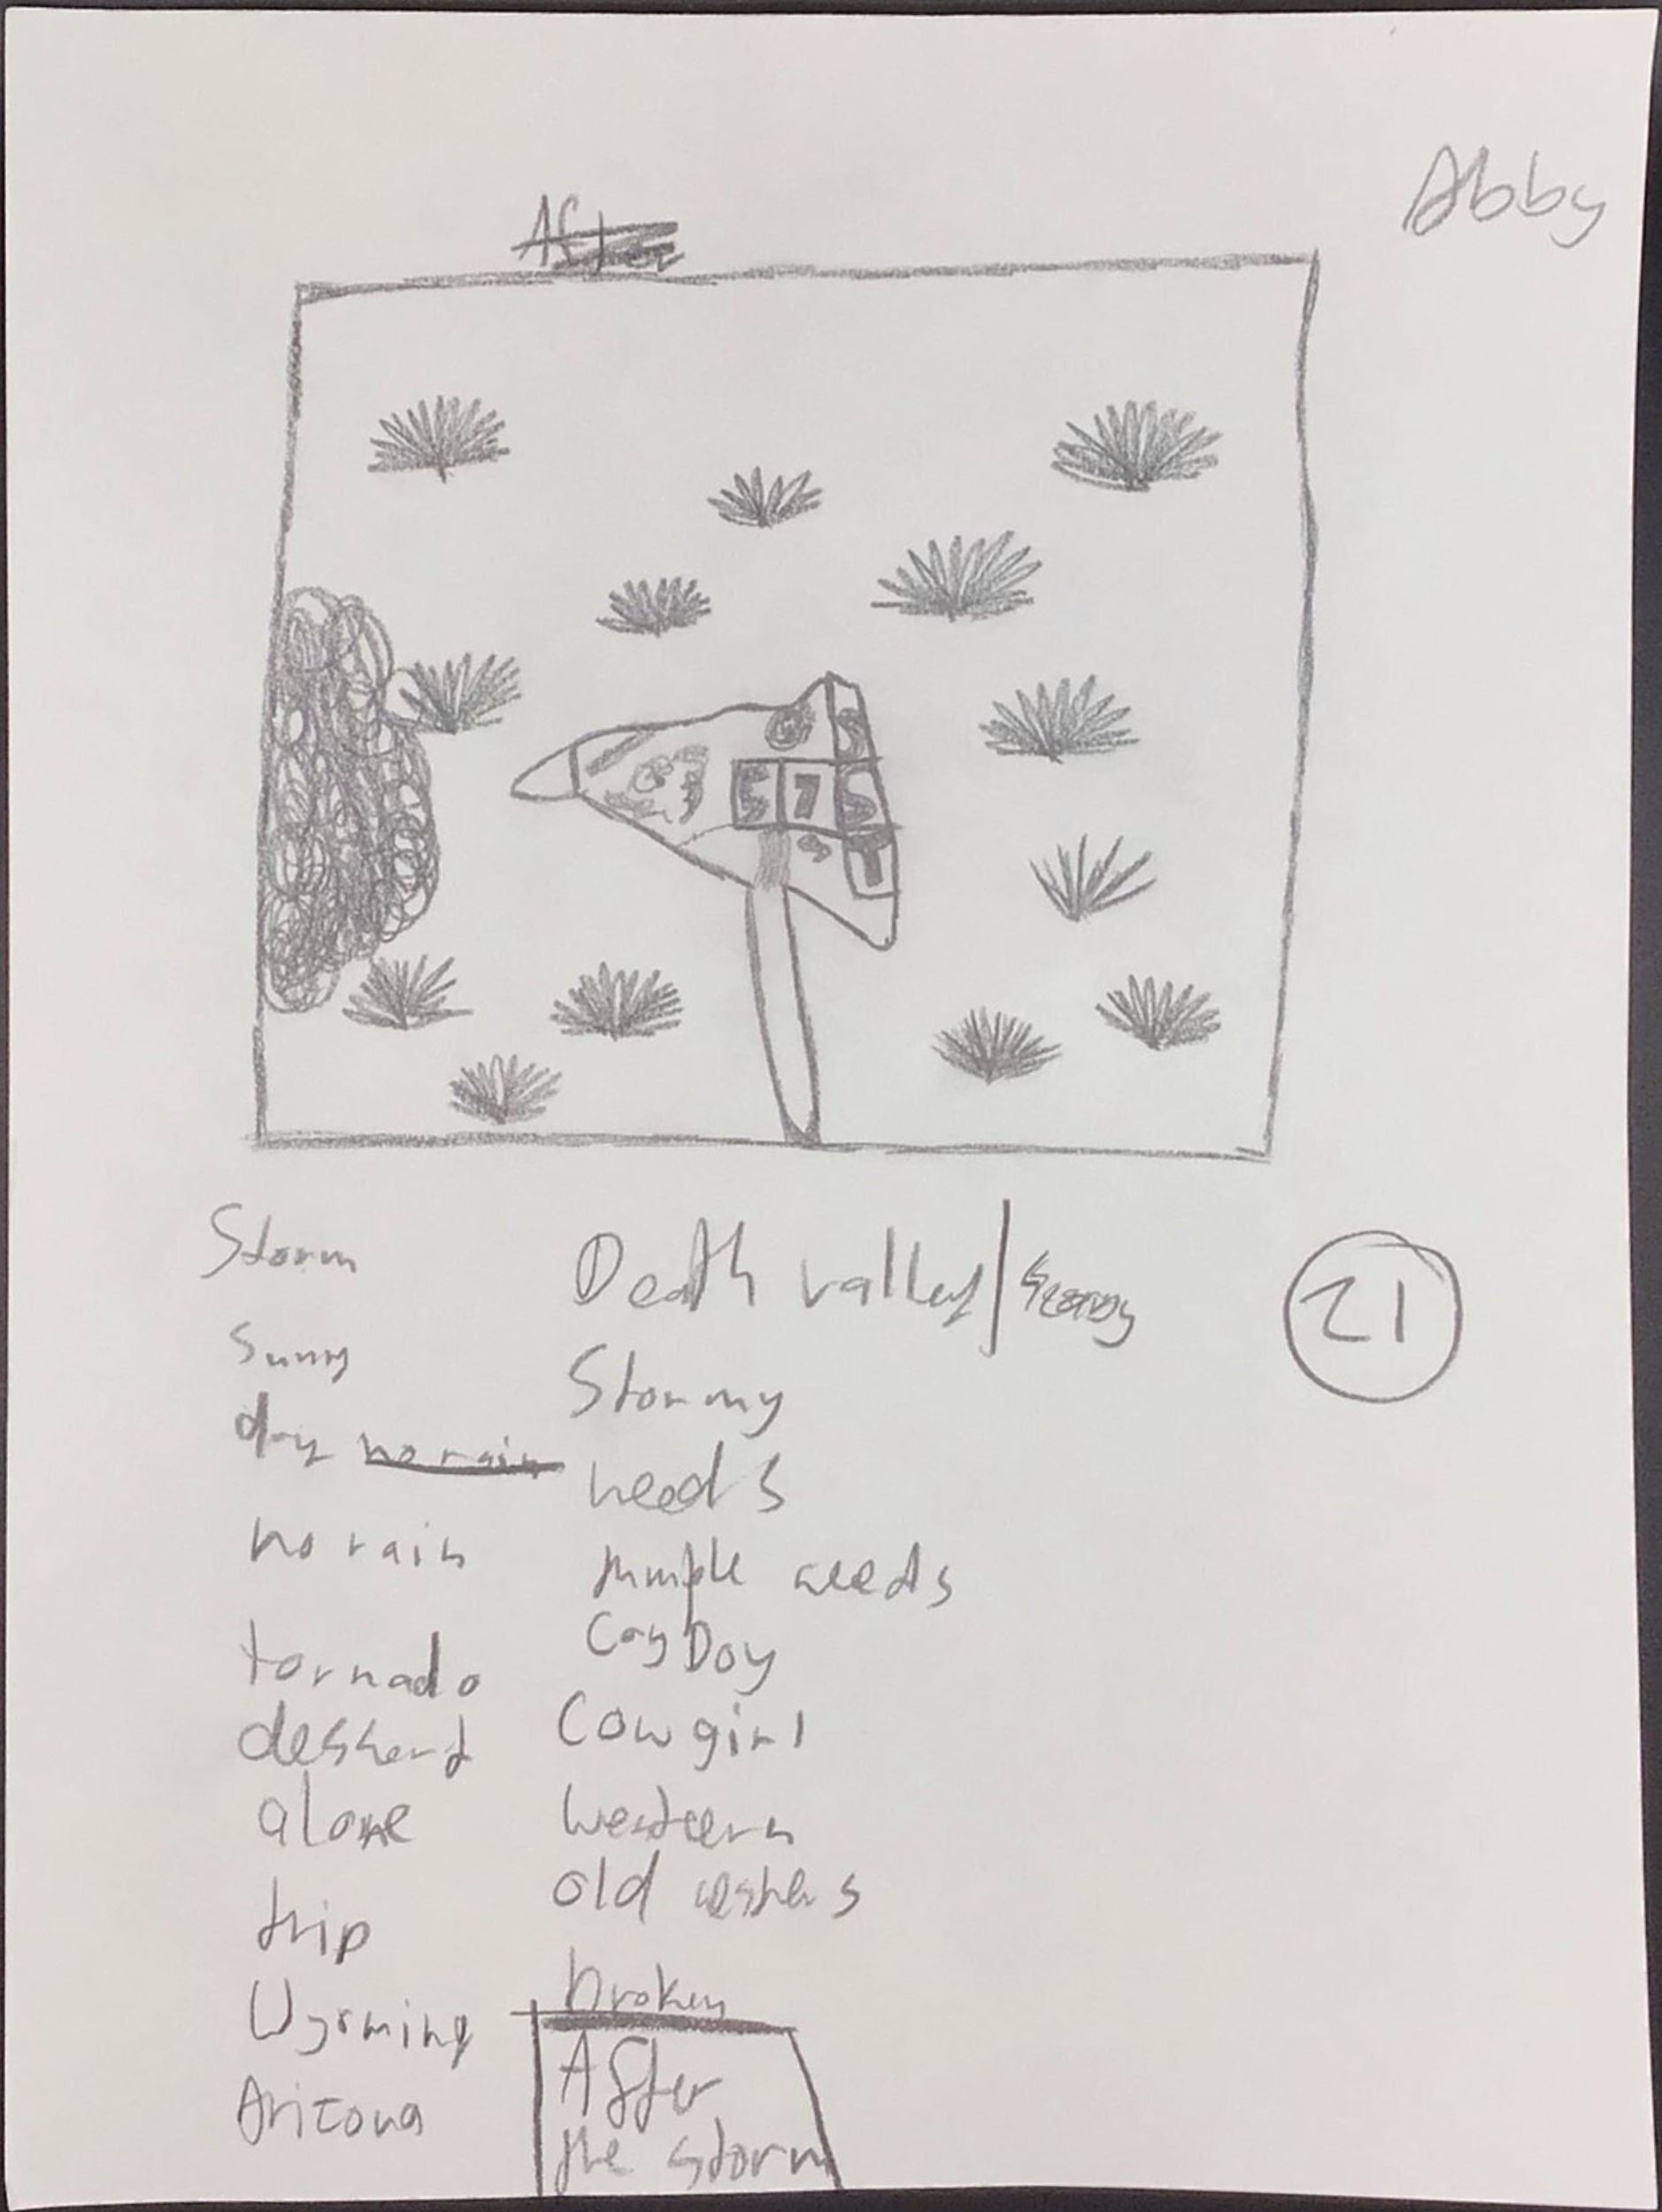 Abby
After
575
Storm
sunny
day no rain
no rain
tornado
dessert
alone
trip
Wyoming
Arizona
Death valley/
Stormy
weeds
weeds
Coy Doy
Cowgirl
Western
old
broken
After
the storm
21